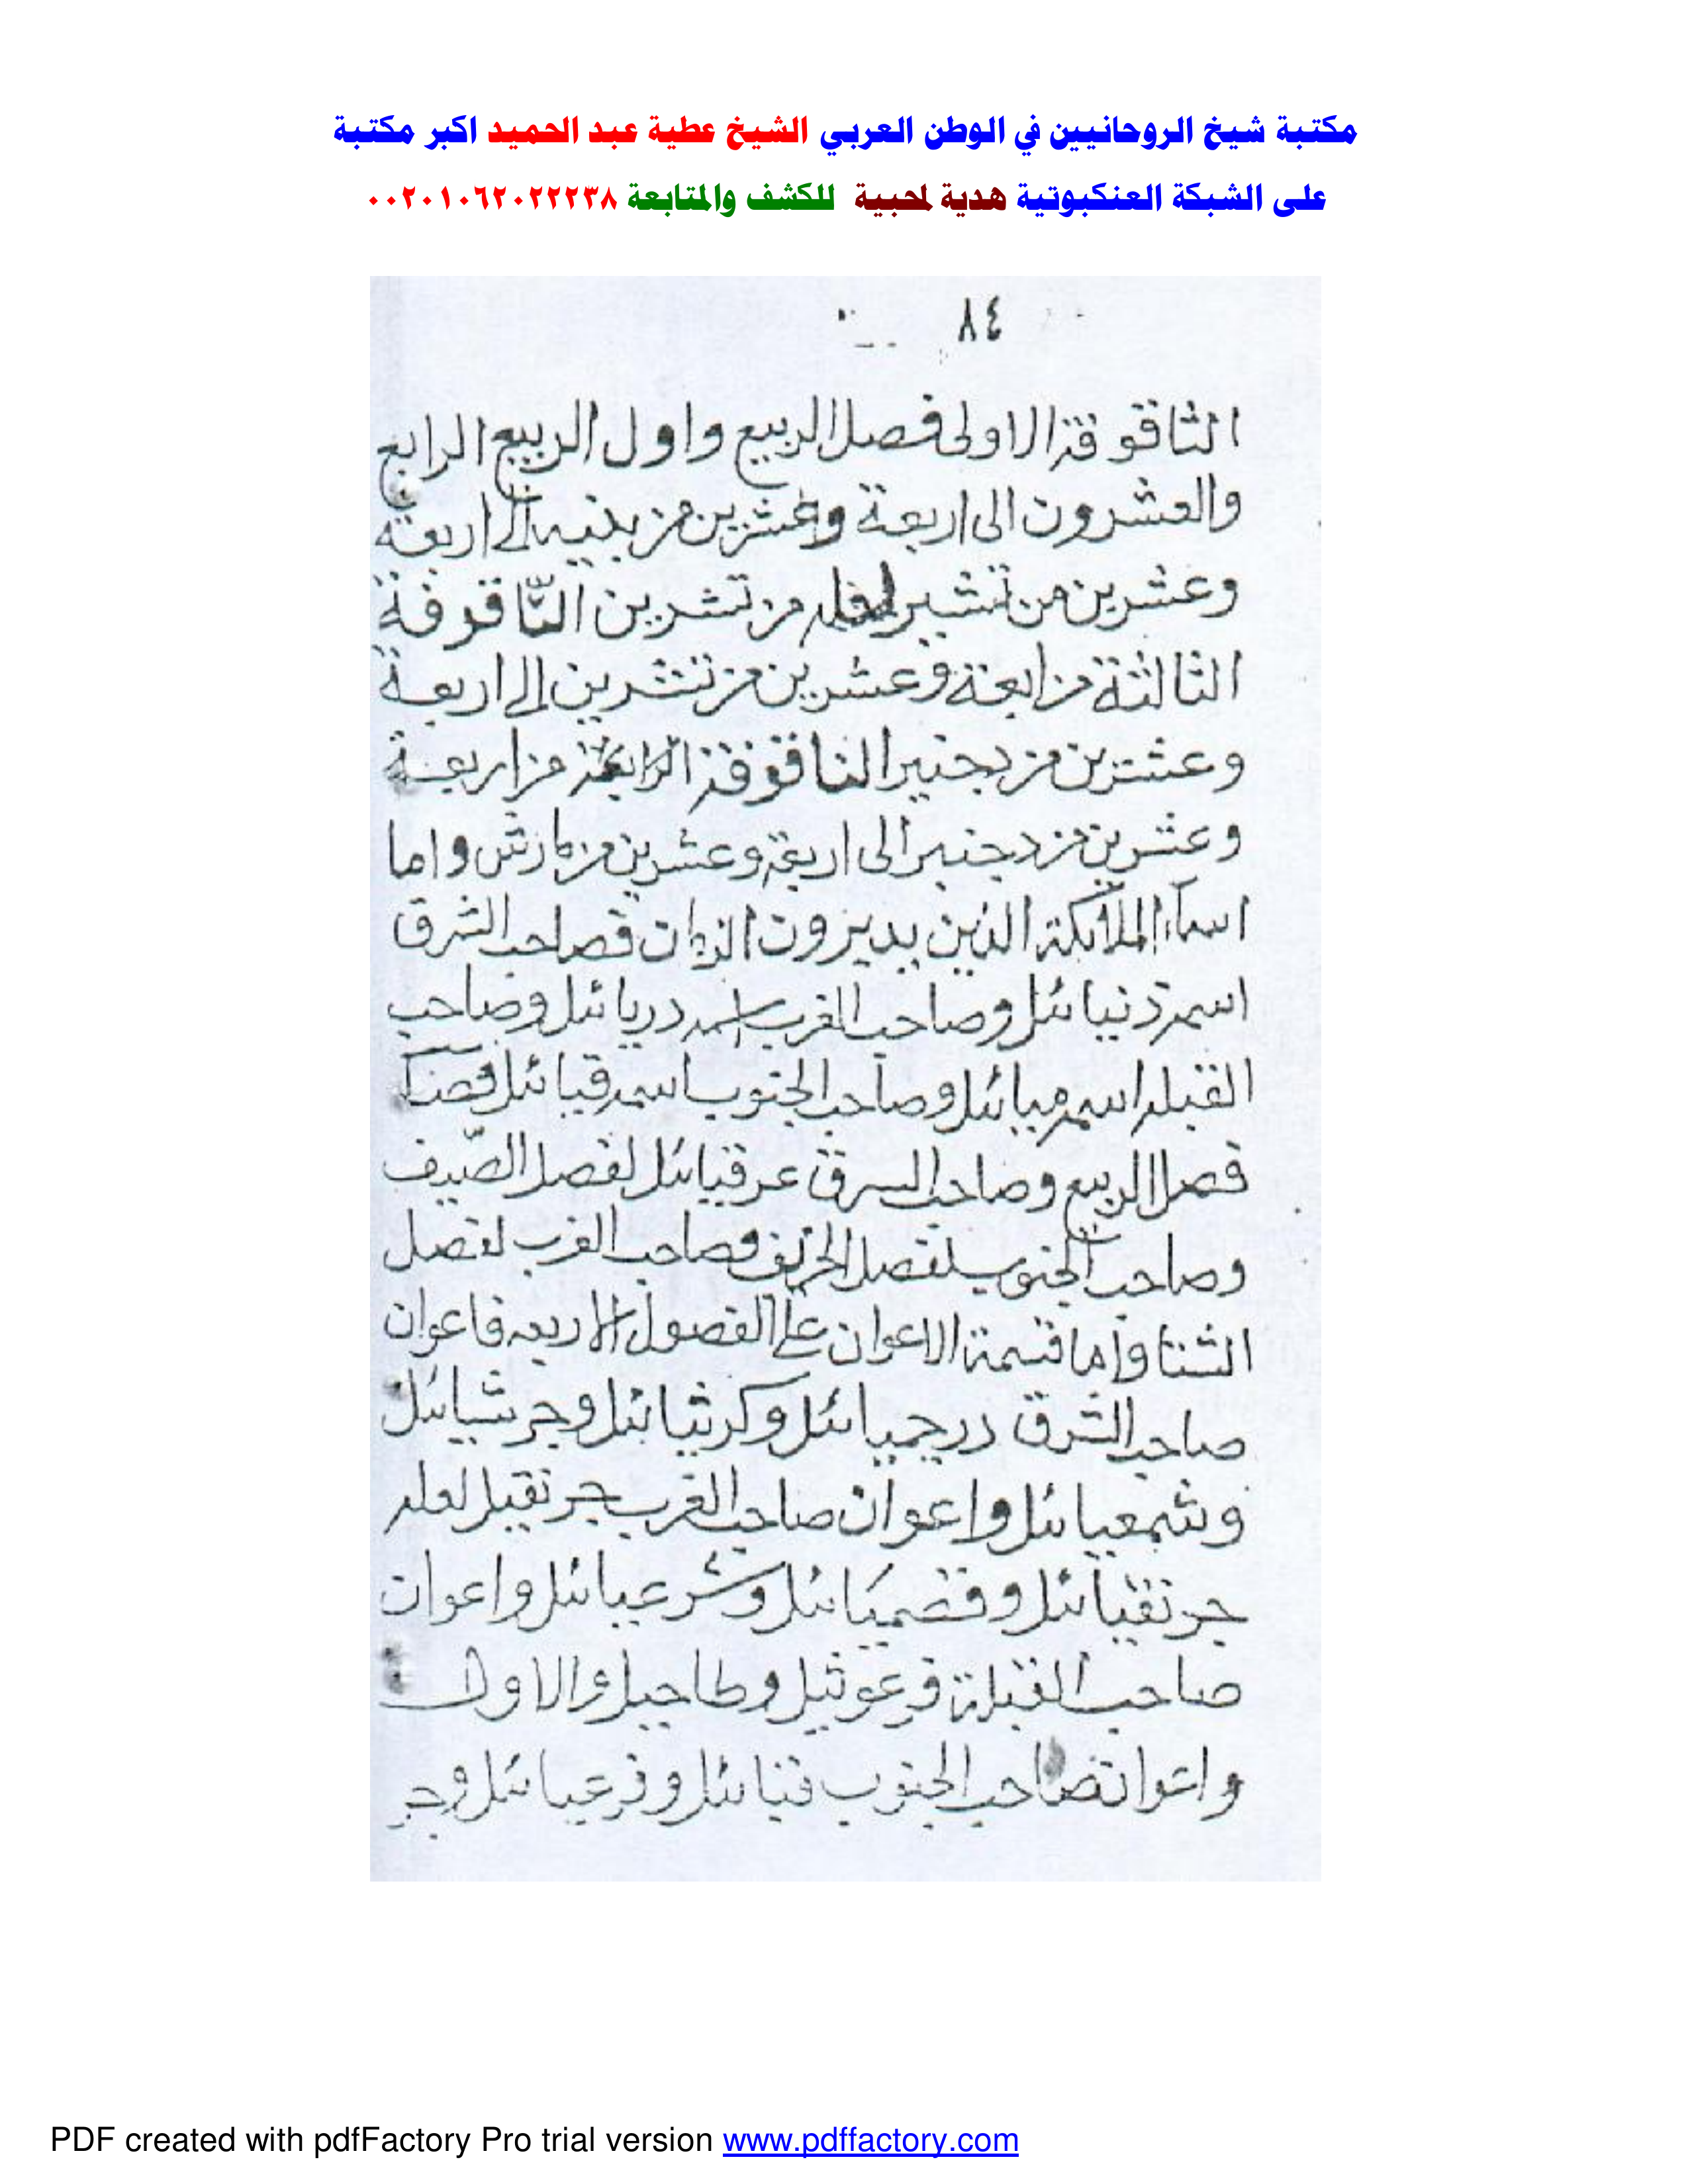 مكتبة شيخ الروحانيين في الوطن العربي الشيخ عطية عبد الحميد اكبر مكتبة
على الشبكة العنكبوتية هدية لمحبية للكشف والمتابعة ٠٠٢٠١٠٦٢٠٢٢٢٣٨
٨٤
الثاقوقة الاولى فصل الربيع واول الربيع الرابع
والعشرون الى اربعة وعشرين من الى اربعة
وعشرين من من تشرين الثاقوفة
الثالثة من اربعة وعشرين من تشرين الى اربعة
وعشرين من دجنبر الثاقوقة الرابعة من اربعة
وعشرين من دجنبر الى اربعة وعشرين من مارش واما
اسماء الملائكة الذين يديرون الزمان فصاحب الشرق
اسمه دنيائل وصاحب الغرب اسمه دريائل وصاحب
القبله اسمه ميائل وصاحب الجنوب اسمه قيائل
فصل الربيع وصاحب السرق عرقيائل لفصل الصيف
وصاحب الجنوب لفصل الخريف وصاحب الغرب لفصل
الشتا واما قسمة الاعوان على الفصول الاربعه فاعوان
صاحب الشرق درجميائل وكرثيائل وجرشيائل
وشمعيائل واعوان صاحب الغرب جرنقيل لعله
جرنقيائل وقضميائل وشرعيائل واعوان
صاحب القبلة فرعوثيل وطاحيل والاول
واعوان صاحب الجنوب قنيائل وفرعيائل وجر
PDF created with pdfFactory Pro trial version www.pdffactory.com